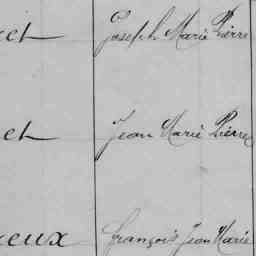 et Joseph Marie Pierre
et Jean Marie Pierre
eux François Jean Marie